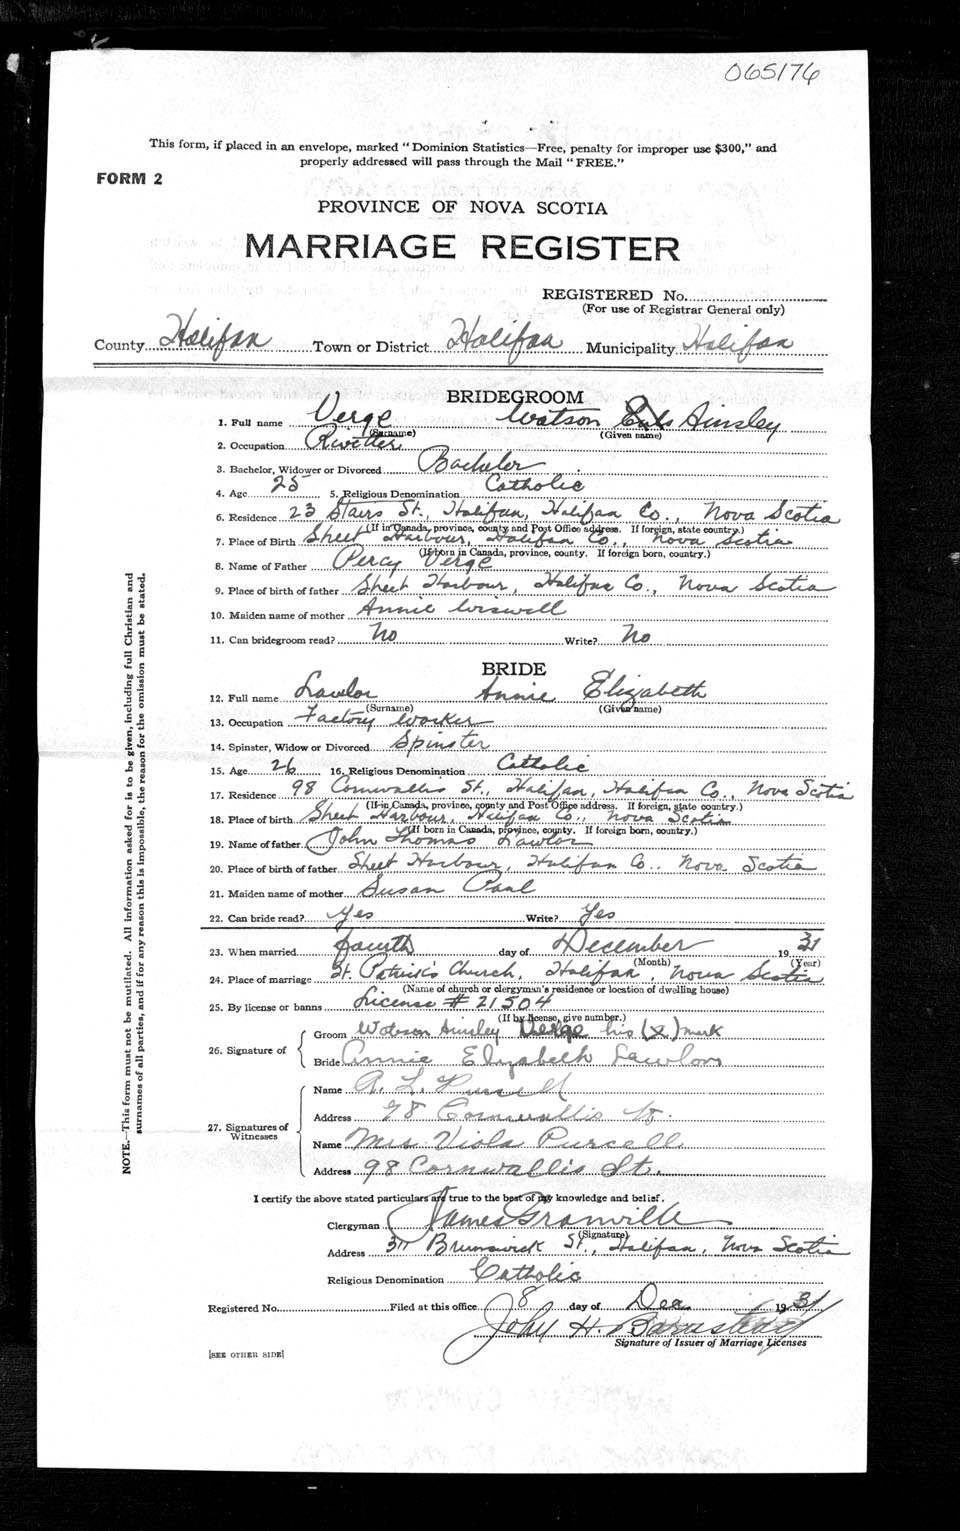 065176
This form, if placed in an envelope, marked "Dominion Statistics—Free, penalty for improper use $300," and
properly addressed will pass through the Mail "FREE."
FORM 2
PROVINCE OF NOVA SCOTIA
MARRIAGE REGISTER
REGISTERED No.
(For use of Registrar General only)
County Halifax Town or District Halifax Municipality Halifax
BRIDEGROOM
1. Full name Verge Watson Ainsley
(Surname) (Given name)
2. Occupation Rivetter
3. Bachelor, Widower or Divorced Bachelor
4. Age 25 5. Religious Denomination Catholic
6. Residence 23 Stairs St., Halifax, Halifax Co., Nova Scotia
(If in Canada, province, county and Post Office address. If foreign, state country.)
7. Place of Birth Sheet Harbour, Halifax Co., Nova Scotia
(If born in Canada, province, county. If foreign born, country.)
8. Name of Father Percy Verge
9. Place of birth of father Sheet Harbour, Halifax Co., Nova Scotia
10. Maiden name of mother Annie Wiswell
11. Can bridegroom read? No Write? No
BRIDE
12. Full name Lawlor Annie Elizabeth
(Surname) (Given name)
13. Occupation Factory Worker
14. Spinster, Widow or Divorced Spinster
15. Age 26 16. Religious Denomination Catholic
17. Residence 98 Cornwallis St., Halifax, Halifax Co., Nova Scotia
(If in Canada, province, county and Post Office address. If foreign, state country.)
18. Place of birth Sheet Harbour, Halifax Co., Nova Scotia
(If born in Canada, province, county. If foreign born, country.)
19. Name of father John Thomas Lawlor
20. Place of birth of father Sheet Harbour, Halifax Co., Nova Scotia
21. Maiden name of mother Susan Paul
22. Can bride read? Yes Write? Yes
23. When married fourth day of December 1931
(Month) (Year)
24. Place of marriage St. Patrick's Church, Halifax, Nova Scotia
(Name of church or clergyman's residence or location of dwelling house)
25. By license or banns License # 21504
(If by license, give number.)
26. Signature of
Groom Watson Ainsley Verge his (x) mark
Bride Annie Elizabeth Lawlor
27. Signatures of Witnesses
Name A. L. Purcell
Address 98 Cornwallis St.
Name Mrs Viola Purcell
Address 98 Cornwallis St.
I certify the above stated particulars are true to the best of my knowledge and belief.
Clergyman James Granville
(Signature)
Address Brunswick St., Halifax, Nova Scotia
Religious Denomination Catholic
Registered No. Filed at this office 8 day of Dec 1931
John H.
Signature of Issuer of Marriage Licenses
[SEE OTHER SIDE]
NOTE.—This form must not be mutilated. All information asked for is to be given, including full Christian and
surnames of all parties, and if for any reason this is impossible, the reason for the omission must be stated.